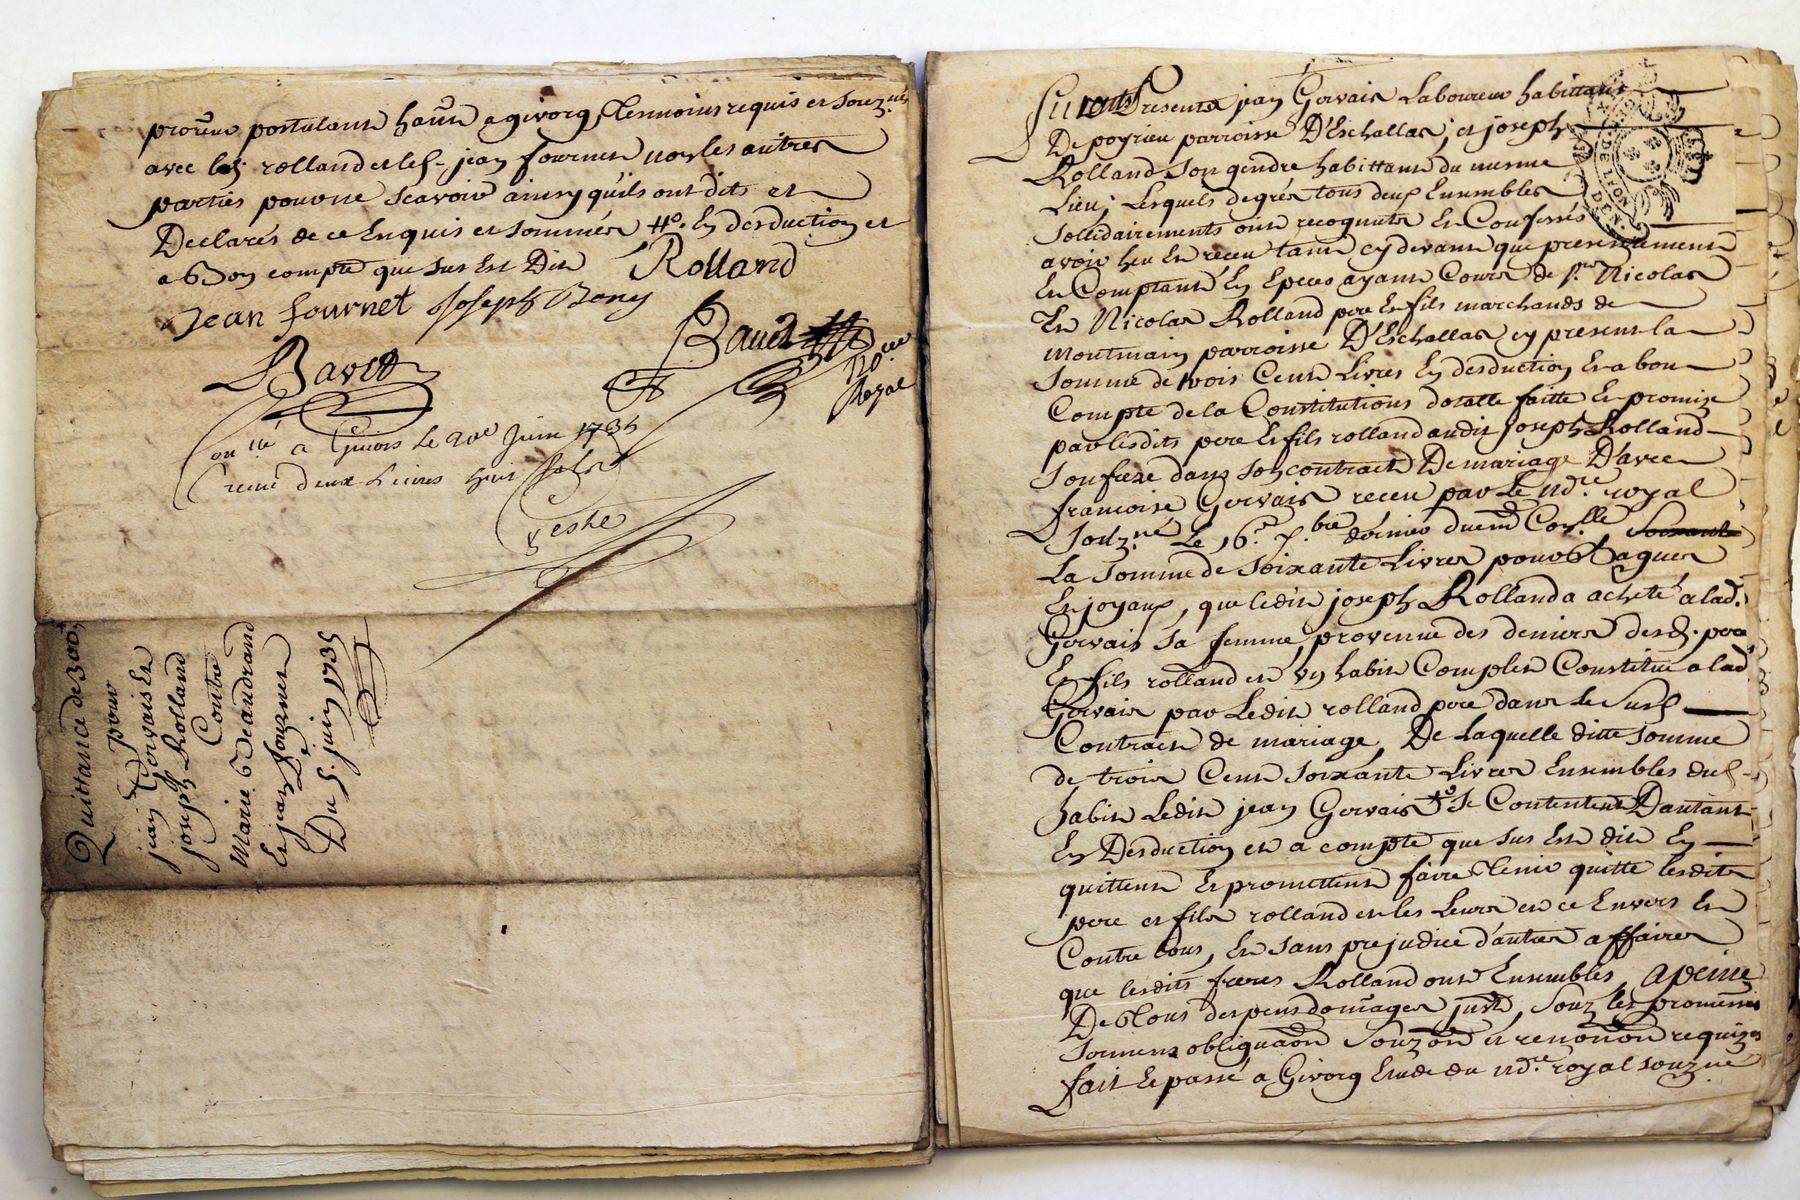 procureur postulant hant a givors, temoins requis et souz.nés
avec led. rolland et led. jean fournet non les autres
parties pour ne scavoir ainsy qu'ils ont dit et
Declarés de ce Enquis et sommés En desduction et
a Bon compte que sus est Dit Rolland
Jean fournet Joseph Bony
Bavet Bavet
no.re Royal
a Givors Le Juin 1735
receu deux Livres huit sols
Quittance de 300#
pour
jean Gervais Et
joseph Rolland
Contre
Marie Deandrand
Et jean fournet
Du 5. juin 1735
furent Presents jean Gervais Laboureur habittant
De poyrau parroisse D'Eschallas; et joseph
Rolland son gendre habittant du mesme
Lieu; Lesquels de grés tous deux Ensembles
sollidairements ont recognuts Et Confessés
avoir heu Et receu tant cy devant que presentement
En Comptant En Especes ayant Cours de s.r Nicolas
Et Nicolas Rolland pere Et fils marchands de
montmain parroisse D'Eschallas cy present la
somme de trois Cent Livres En desduction Et a bon
Compte de la Constitutions dotalle faitte Et promise
par lesdits pere Et fils rolland audit joseph Rolland
son frere dans son contract De mariage D'avec
francoise Gervais receu par Le no.re royal
souz.né Le 16.e 7.bre dernier
La somme de soixante Livres pour Bagues
Et joyaux, que ledit joseph Rolland a acheté a lad.
Gervais sa femme, provenue des deniers desd. pere
Et fils rolland et un habit Complet Constitué a lad.
Gervais par Ledit rolland pere dans le susd.
Contract de mariage, De Laquelle ditte somme
de trois Cent soixante Livres Ensembles dud.
habit Ledit jean Gervais se Contentent D'autant
En Desduction et a compte que sus Est dit En
quittent Et promettent faire tenir quitte lesdits
pere et fils rolland et les Leurs et ce Envers Et
Contre tous, Et sans prejudice d'autres affaires
que lesdits freres Rolland ont Ensembles, a peine
De tous despens domages souz les promesses
serment obliga.on souz.on et renon.on requizes
fait Et passé a Givors Etude du no.re royal souz.né